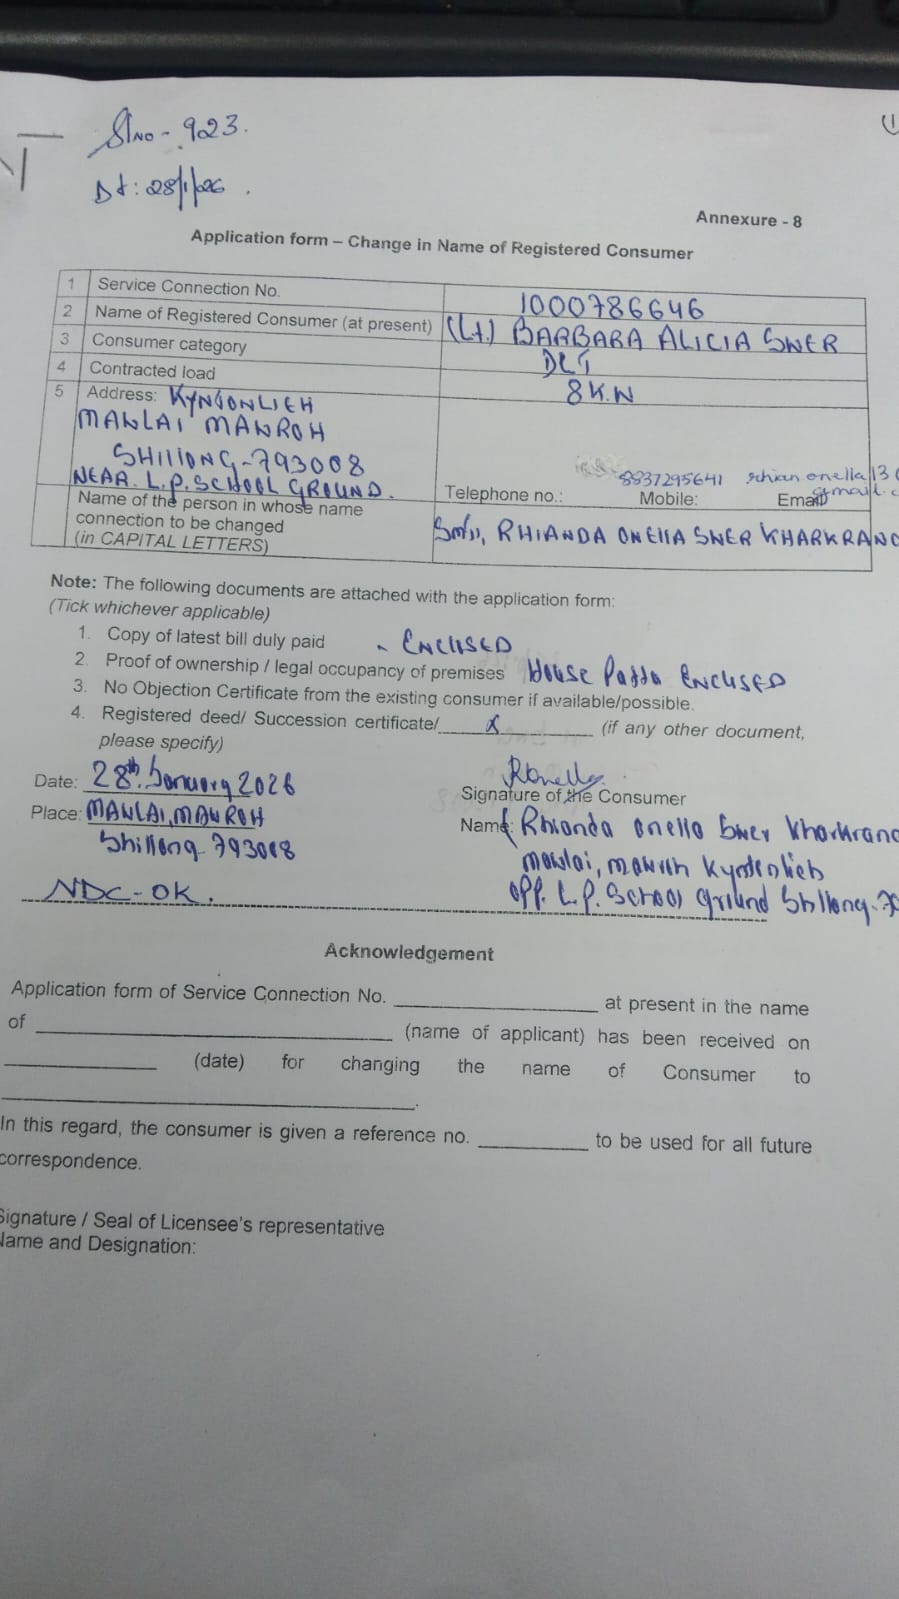 Sl No - 923.
Dt: 28/1/26.
Annexure - 8
Application form – Change in Name of Registered Consumer
1 Service Connection No. 1000786646
2 Name of Registered Consumer (at present) (Lt.) BARBARA ALICIA SWER
3 Consumer category DLT
4 Contracted load 8K.W
5 Address: KYNTONLIEH
MAWLAI MAWROH
SHILLONG-793008
NEAR. L.P. SCHOOL GROUND.
8837295641
Telephone no.: Mobile: Email
Name of the person in whose name
connection to be changed
(in CAPITAL LETTERS)
Smti, RHIANDA ONELLA SWER KHARKRANG
Note: The following documents are attached with the application form:
(Tick whichever applicable)
1. Copy of latest bill duly paid - ENCLOSED
2. Proof of ownership / legal occupancy of premises House Patta ENCLOSED
3. No Objection Certificate from the existing consumer if available/possible.
4. Registered deed/ Succession certificate/ (if any other document,
please specify)
Date: 28th. January 2026
Signature of the Consumer
Place: MAWLAI, MAWROH
Shillong-793008
Name: Rhianda Onella Swer Kharkrang
Mawlai, Mawroh Kyntonlieh
opp. L.P. School ground Shillong-
NDC-OK.
Acknowledgement
Application form of Service Connection No. at present in the name
of (name of applicant) has been received on
(date) for changing the name of Consumer to
.
In this regard, the consumer is given a reference no. to be used for all future
correspondence.
Signature / Seal of Licensee's representative
Name and Designation: